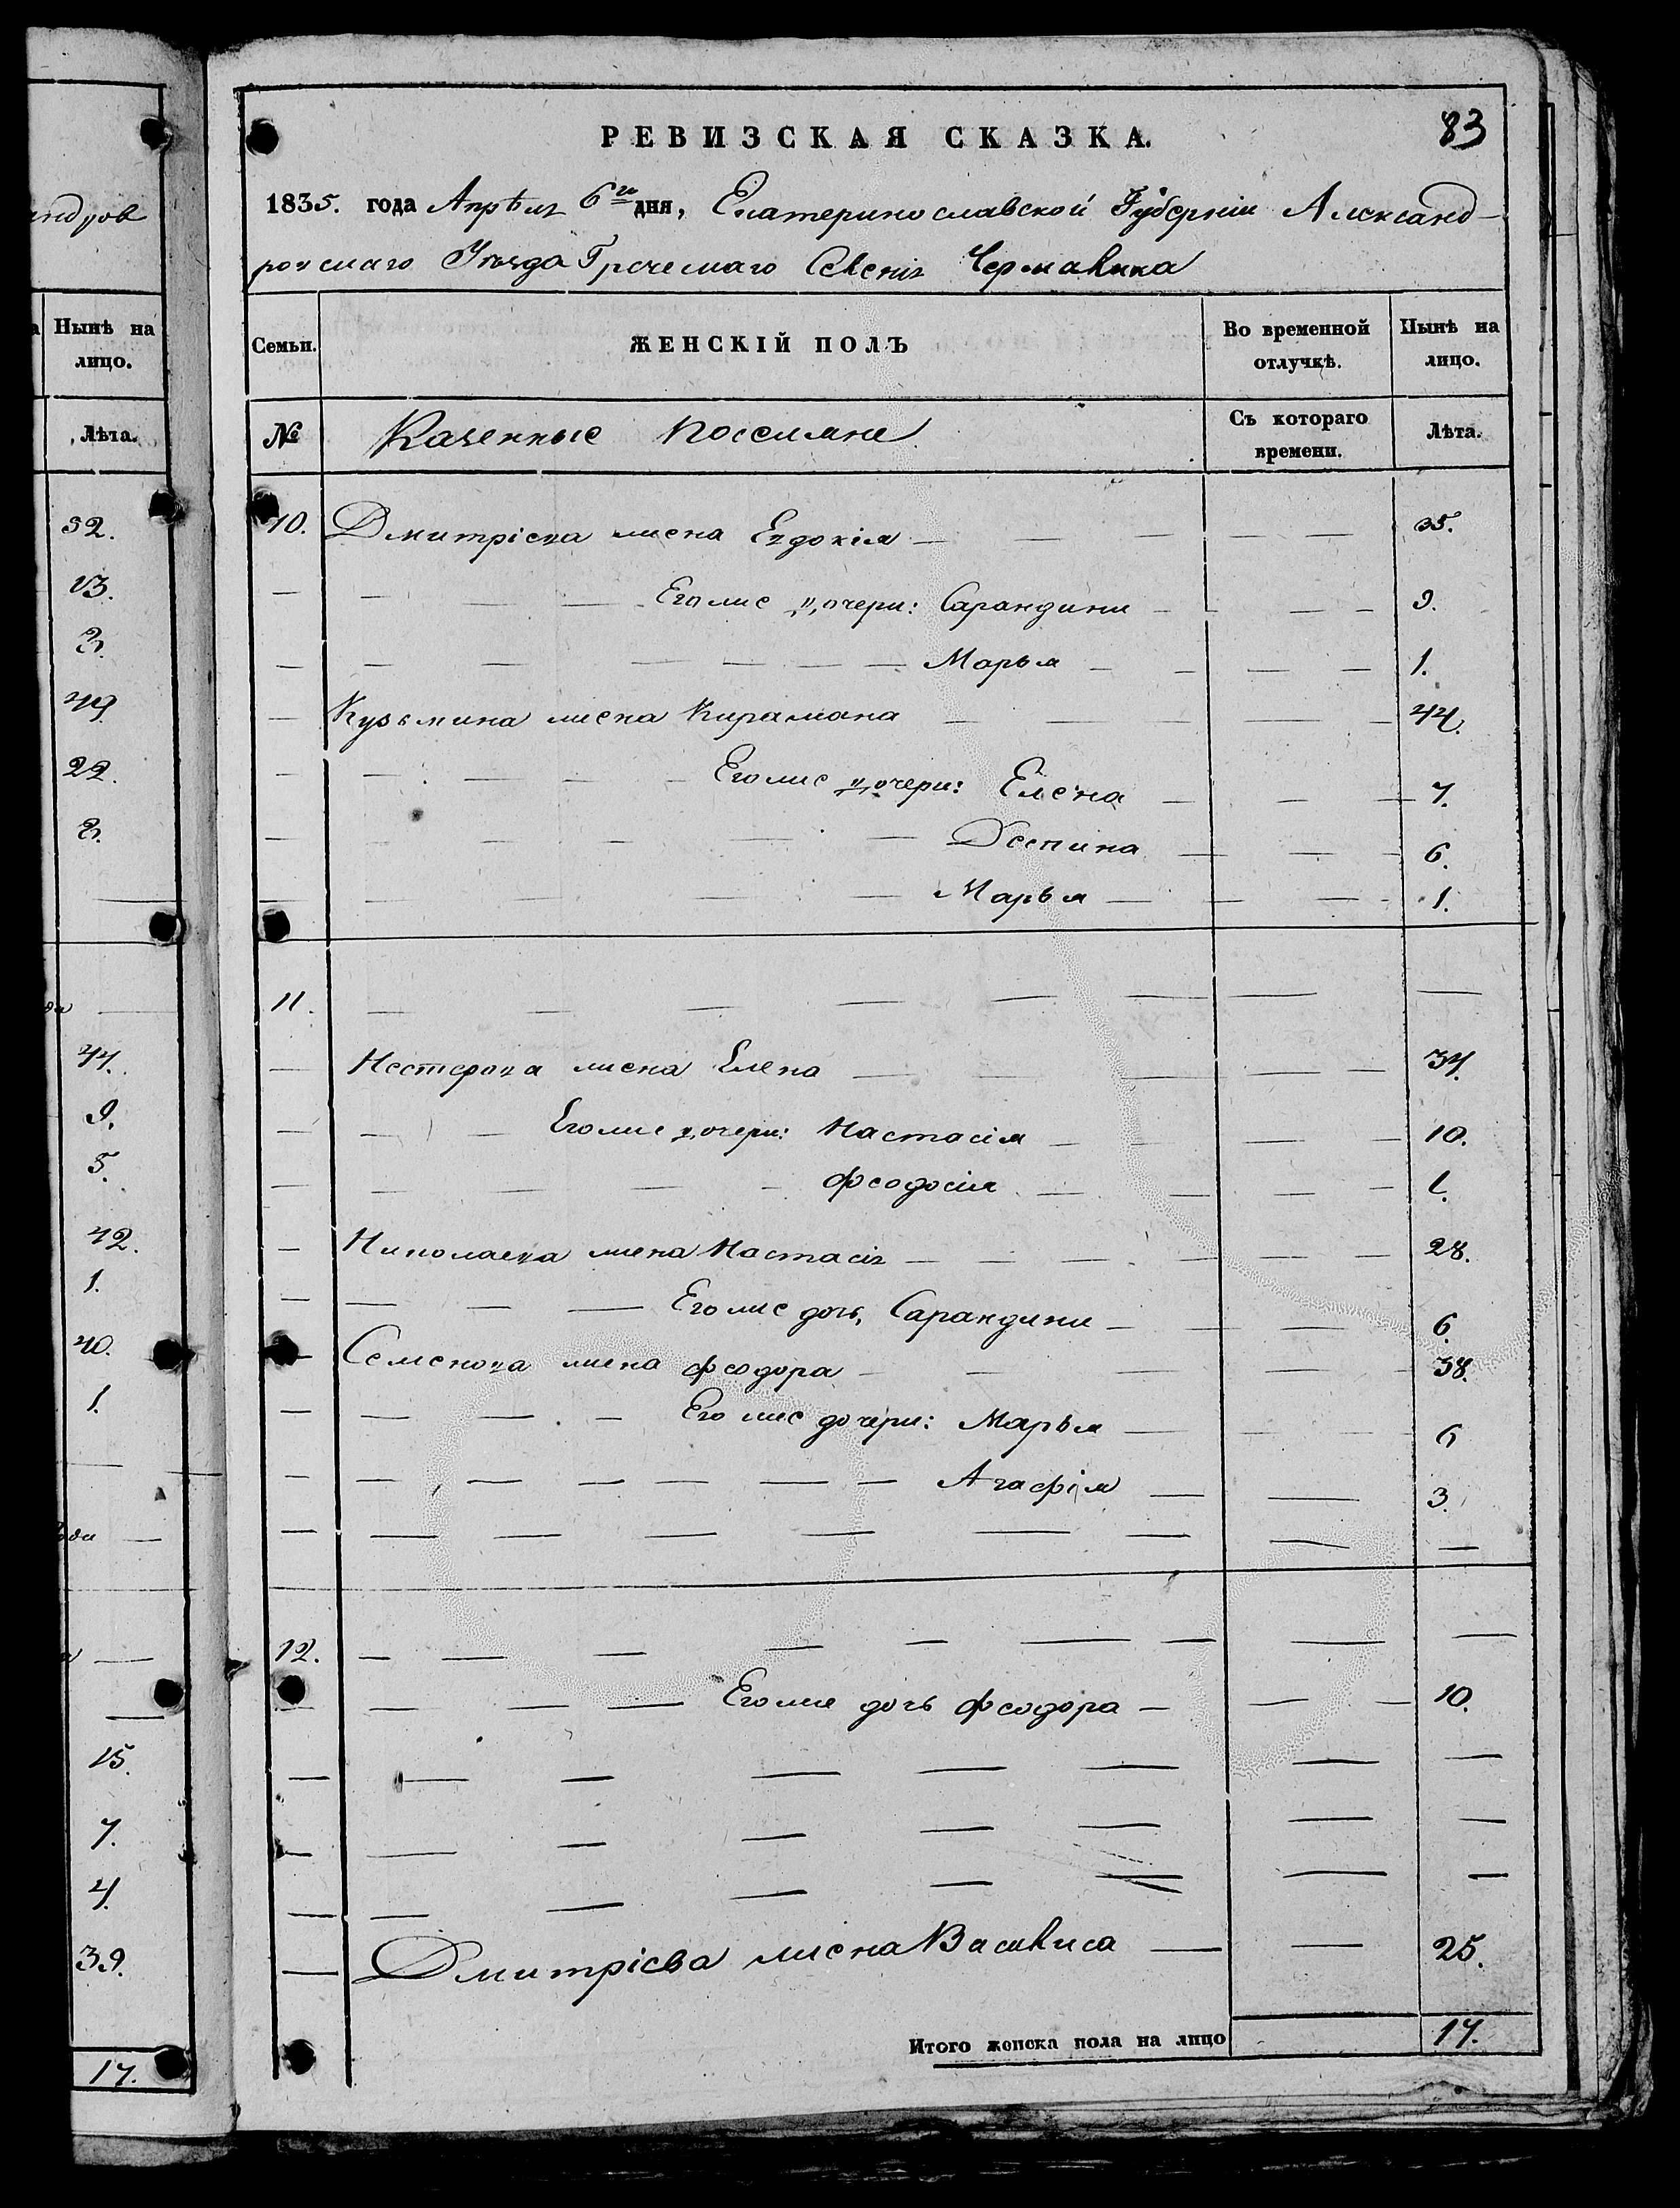 РЕВИЗСКАЯ СКАЗКА.
83
1835. года Апрѣля 6го дня, Екатеринославской Губерніи Александ-
ровскаго Уѣзда Греческаго Селенія Чермалыка
Семьи. ЖЕНСКІЙ ПОЛЪ Во временной отлучкѣ. Нынѣ на лицо.
№ Казенные поселяне Съ котораго времени. Лѣта.
10. Дмитріева жена Евдокія — 35.
Его же дочери: Сарандини — 9.
Марья — 1.
Кузьмина жена — 44.
Его же дочери: Елена — 7.
Деспина — 6.
Марья — 1.
11.
Нестерова жена Елена — 34.
Его же дочери: Настасія — 10.
Феодосія — 1.
Николаева жена Настасія — 28.
Его же дочь, Сарандини — 6.
Семенова жена Феодора — 38.
Его же дочери: Марья — 6
Агафія — 3.
12.
Его же дочь Феодора — 10.
Дмитріева жена Василиса — 25.
Итого женска пола на лицо 17.
андров
Нынѣ на
лицо.
Лѣта.
32.
13.
2.
49
22.
2.
44.
9.
5.
42.
1.
40.
1.
15.
7.
4.
39.
17.